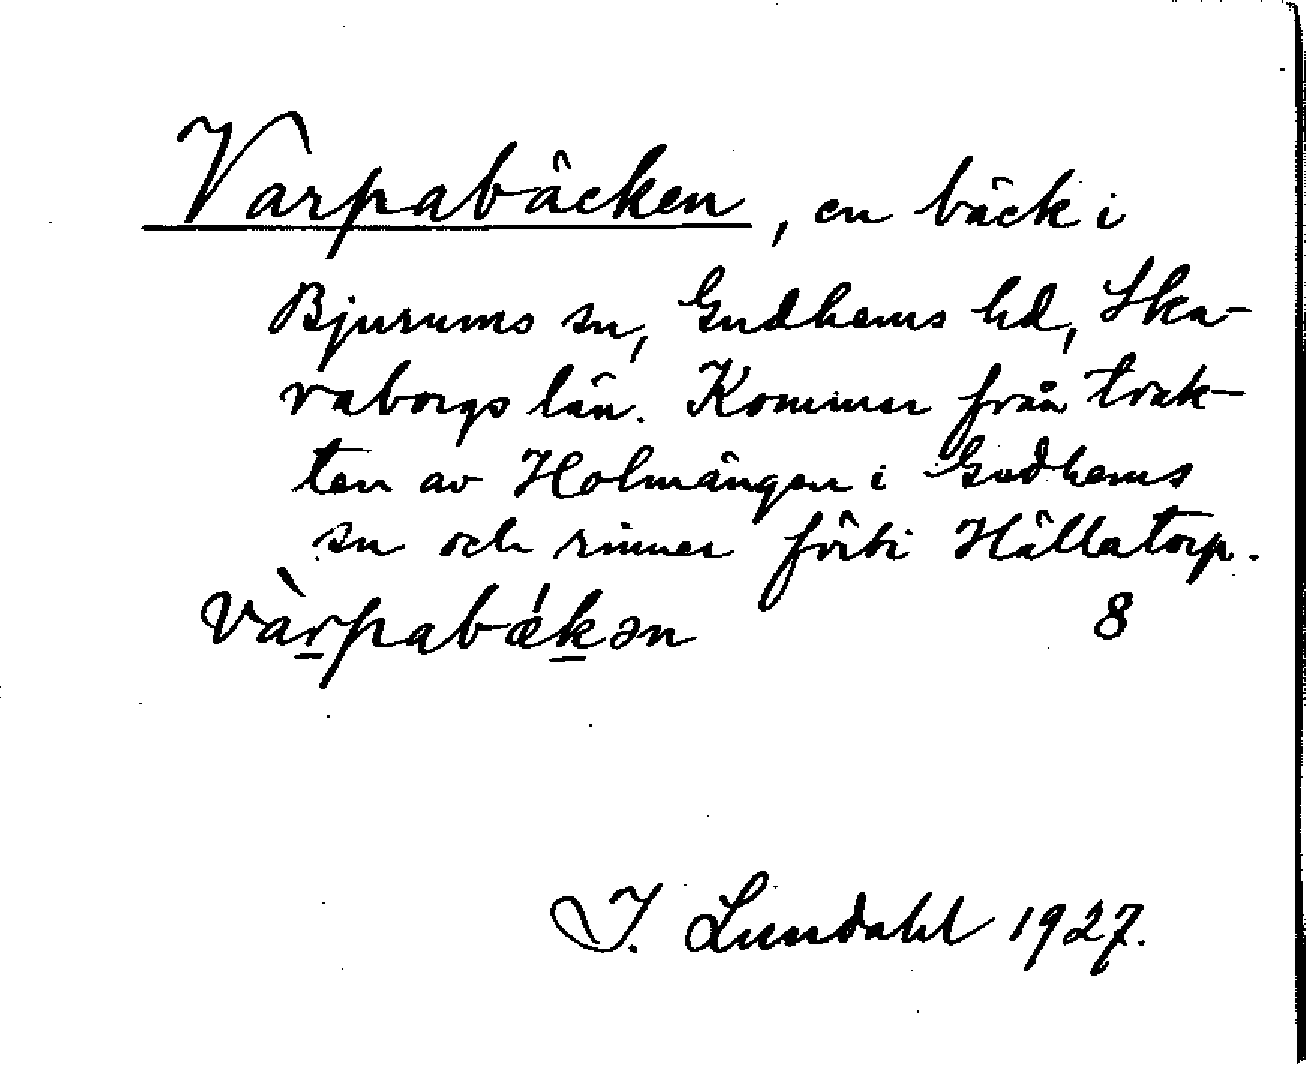 Varpabäcken, en bäck i
Bjurums sn, Gudhems hd, Ska-
raborgs län. Kommer från trak-
ten av Holmängen i Gudhems
sn och rinner förbi Hällatorp.
vàr̠pabǽk̠ən 8
I. Lundahl 1927.